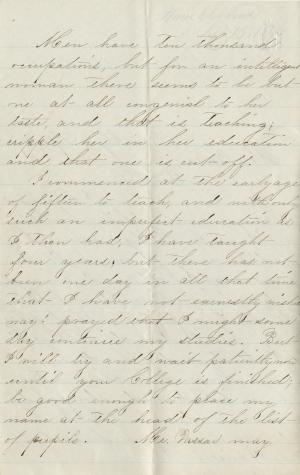 Men have ten thousand
occupations, but for an intelligent
woman there seems to be but
one at all congenial to her
taste, and that is teaching;
cripple her in her education
and that one is cut off.
I commenced at the early age
of fifteen to teach, and with only
such an imperfect education as
I then had, I have taught
four years, but there has not
been one day in all that time
that I have not earnestly wished
nay! prayed that I might some
day continue my studies. But
I will try and wait patiently now
until your College is finished;
be good enough to place my
name at the head of the list
of pupils. Mr. Vassar may